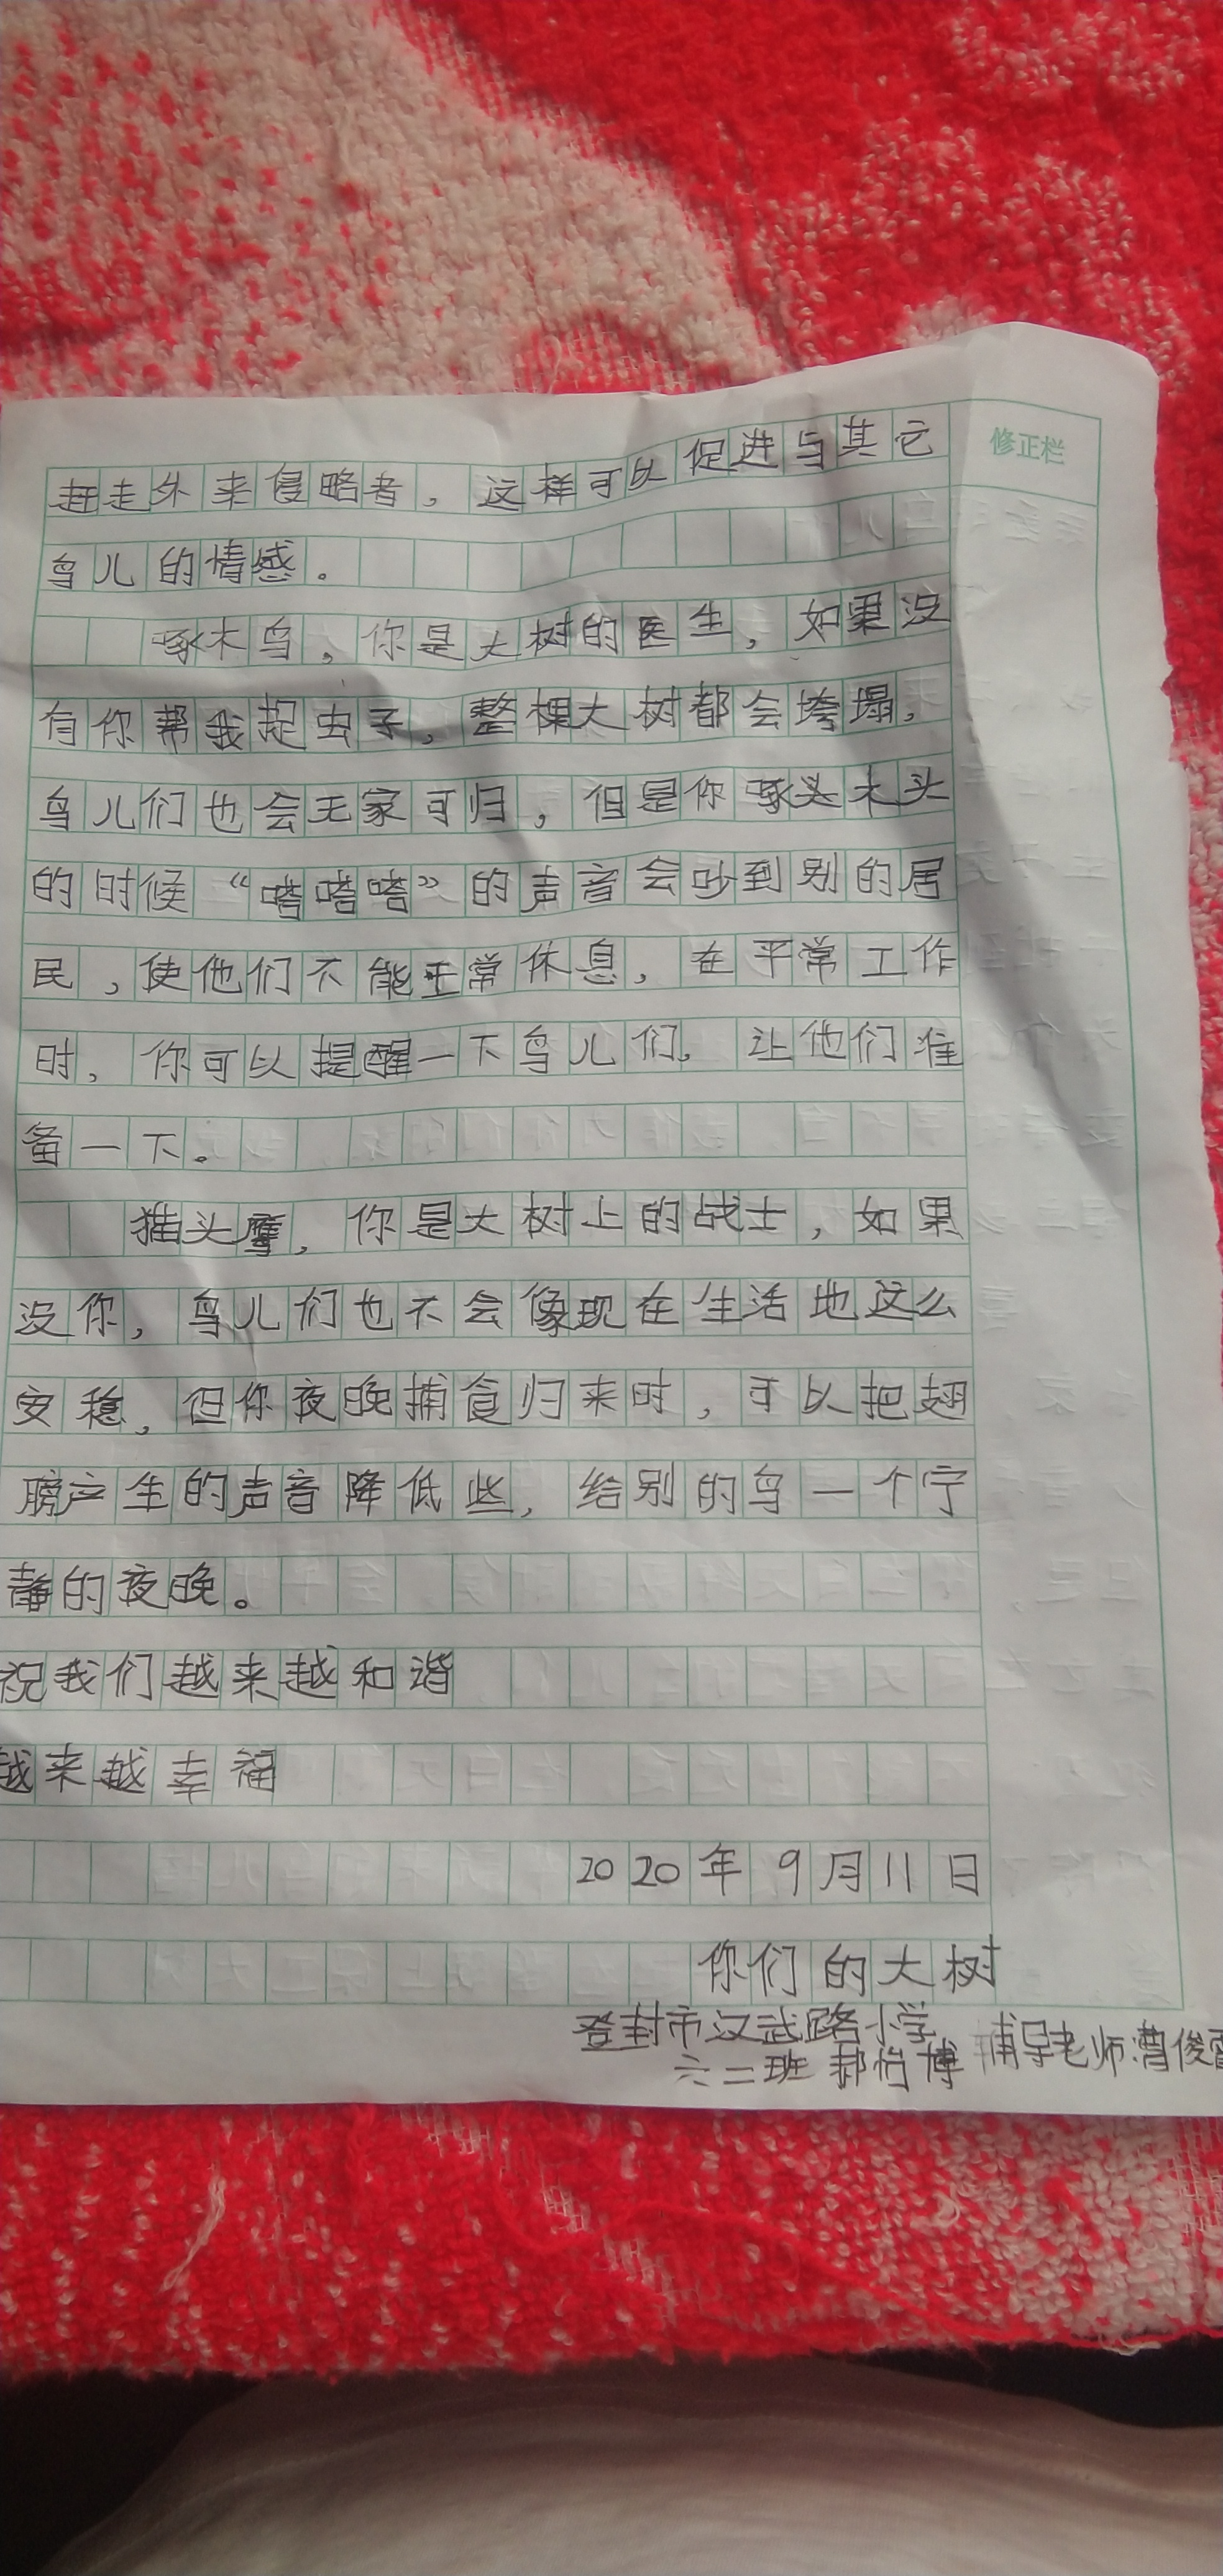 修正栏
赶走外来侵略者，这样可以促进与其它
鸟儿的情感。
啄木鸟，你是大树的医生，如果没
有你帮我捉虫子，整棵大树都会垮塌，
鸟儿们也会无家可归，但是你啄头木头
的时候“嗒嗒嗒”的声音会吵到别的居
民，使他们不能正常休息，在平常工作
时，你可以提醒一下鸟儿们，让他们准
备一下。
猫头鹰，你是大树上的战士，如果
没你，鸟儿们也不会像现在生活地这么
安稳，但你夜晚捕食归来时，可以把翅
膀产生的声音降低些，给别的鸟一个宁
静的夜晚。
祝我们越来越和谐
越来越幸福
2020年9月11日
你们的大树
登封市汉武路小学
六二班 郝怡博 辅导老师:曹俊霞